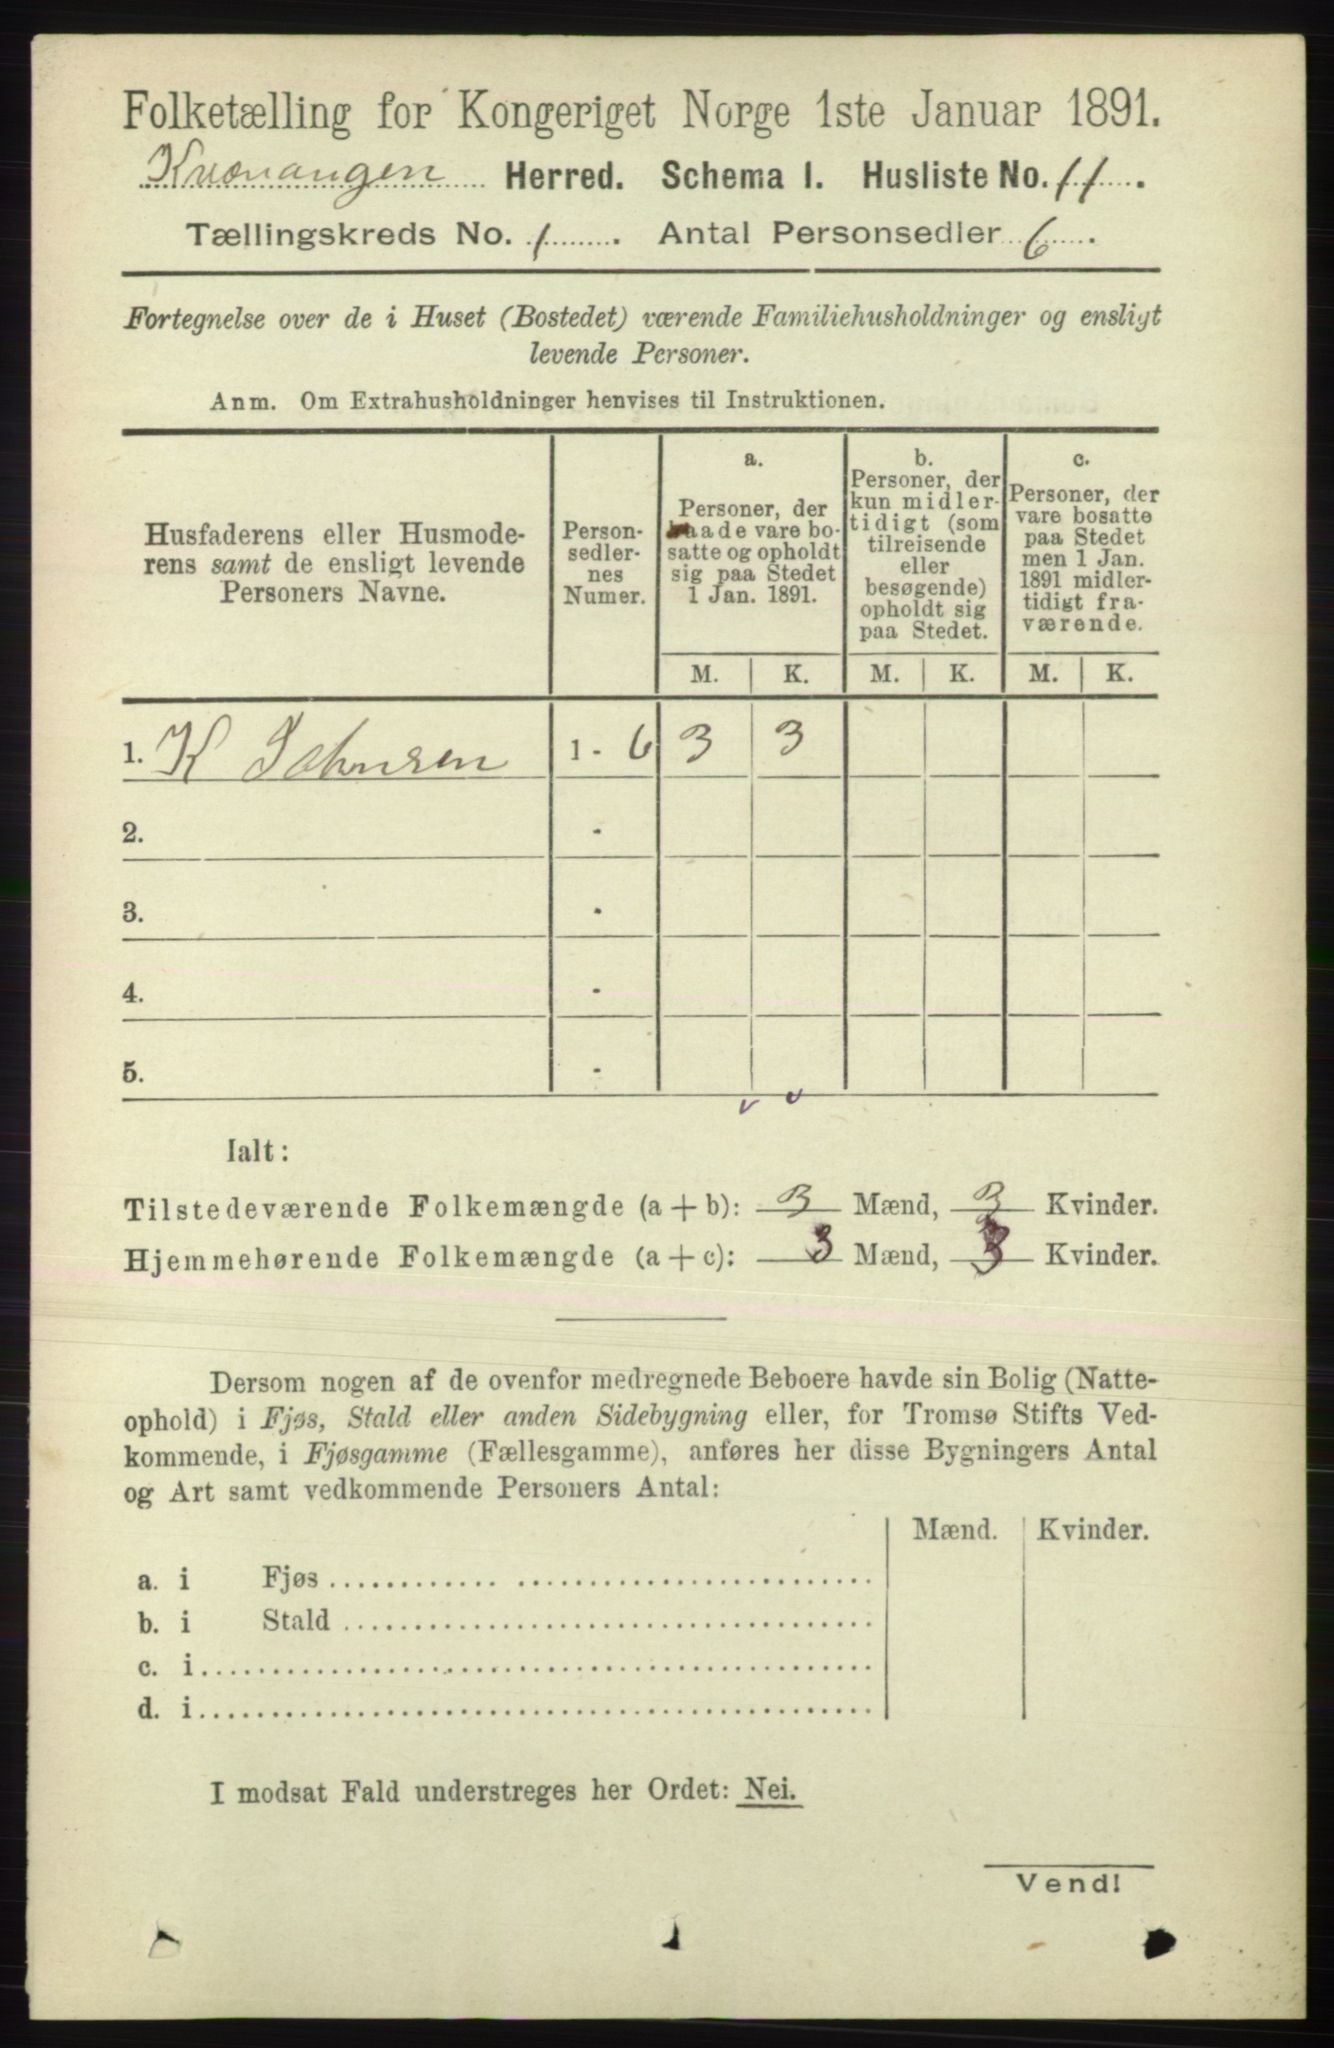 Folketælling for Kongeriget Norge 1ste Januar 1891.
Kvænangen Herred. Schema 1. Husliste No. 11.
Tællingskreds No. 1. Antal Personsedler 6.
Fortegnelse over de i Huset (Bostedet) værende Familiehusholdninger og ensligt
levende Personer.
Anm. Om Extrahusholdninger henvises til Instruktionen.
Husfaderens eller Husmode-
rens samt de ensligt levende
Personers Navne.
Person-
sedler-
nes
Numer.
a.
Personer, der
baade vare bo-
satte og opholdt
sig paa Stedet
1 Jan. 1891.
b.
Personer, der
kun midler-
tidigt (som
tilreisende
eller
besøgende)
opholdt sig
paa Stedet.
c.
Personer, der
vare bosatte
paa Stedet
men 1 Jan.
1891 midler-
tidigt fra-
værende.
M. K. M. K. M. K.
1. K Johnsen 1 - 6 3 3
2. -
3. -
4. -
5. -
Ialt:
Tilstedeværende Folkemængde (a + b): 3 Mænd, 3 Kvinder.
Hjemmehørende Folkemængde (a + c): 3 Mænd, 3 Kvinder.
Dersom nogen af de ovenfor medregnede Beboere havde sin Bolig (Natte-
ophold) i Fjøs, Stald eller anden Sidebygning eller, for Tromsø Stifts Ved-
kommende, i Fjøsgamme (Fællesgamme), anføres her disse Bygningers Antal
og Art samt vedkommende Personers Antal:
Mænd. Kvinder.
a. i Fjøs
b. i Stald
c. i
d. i
I modsat Fald understreges her Ordet: Nei.
Vend!